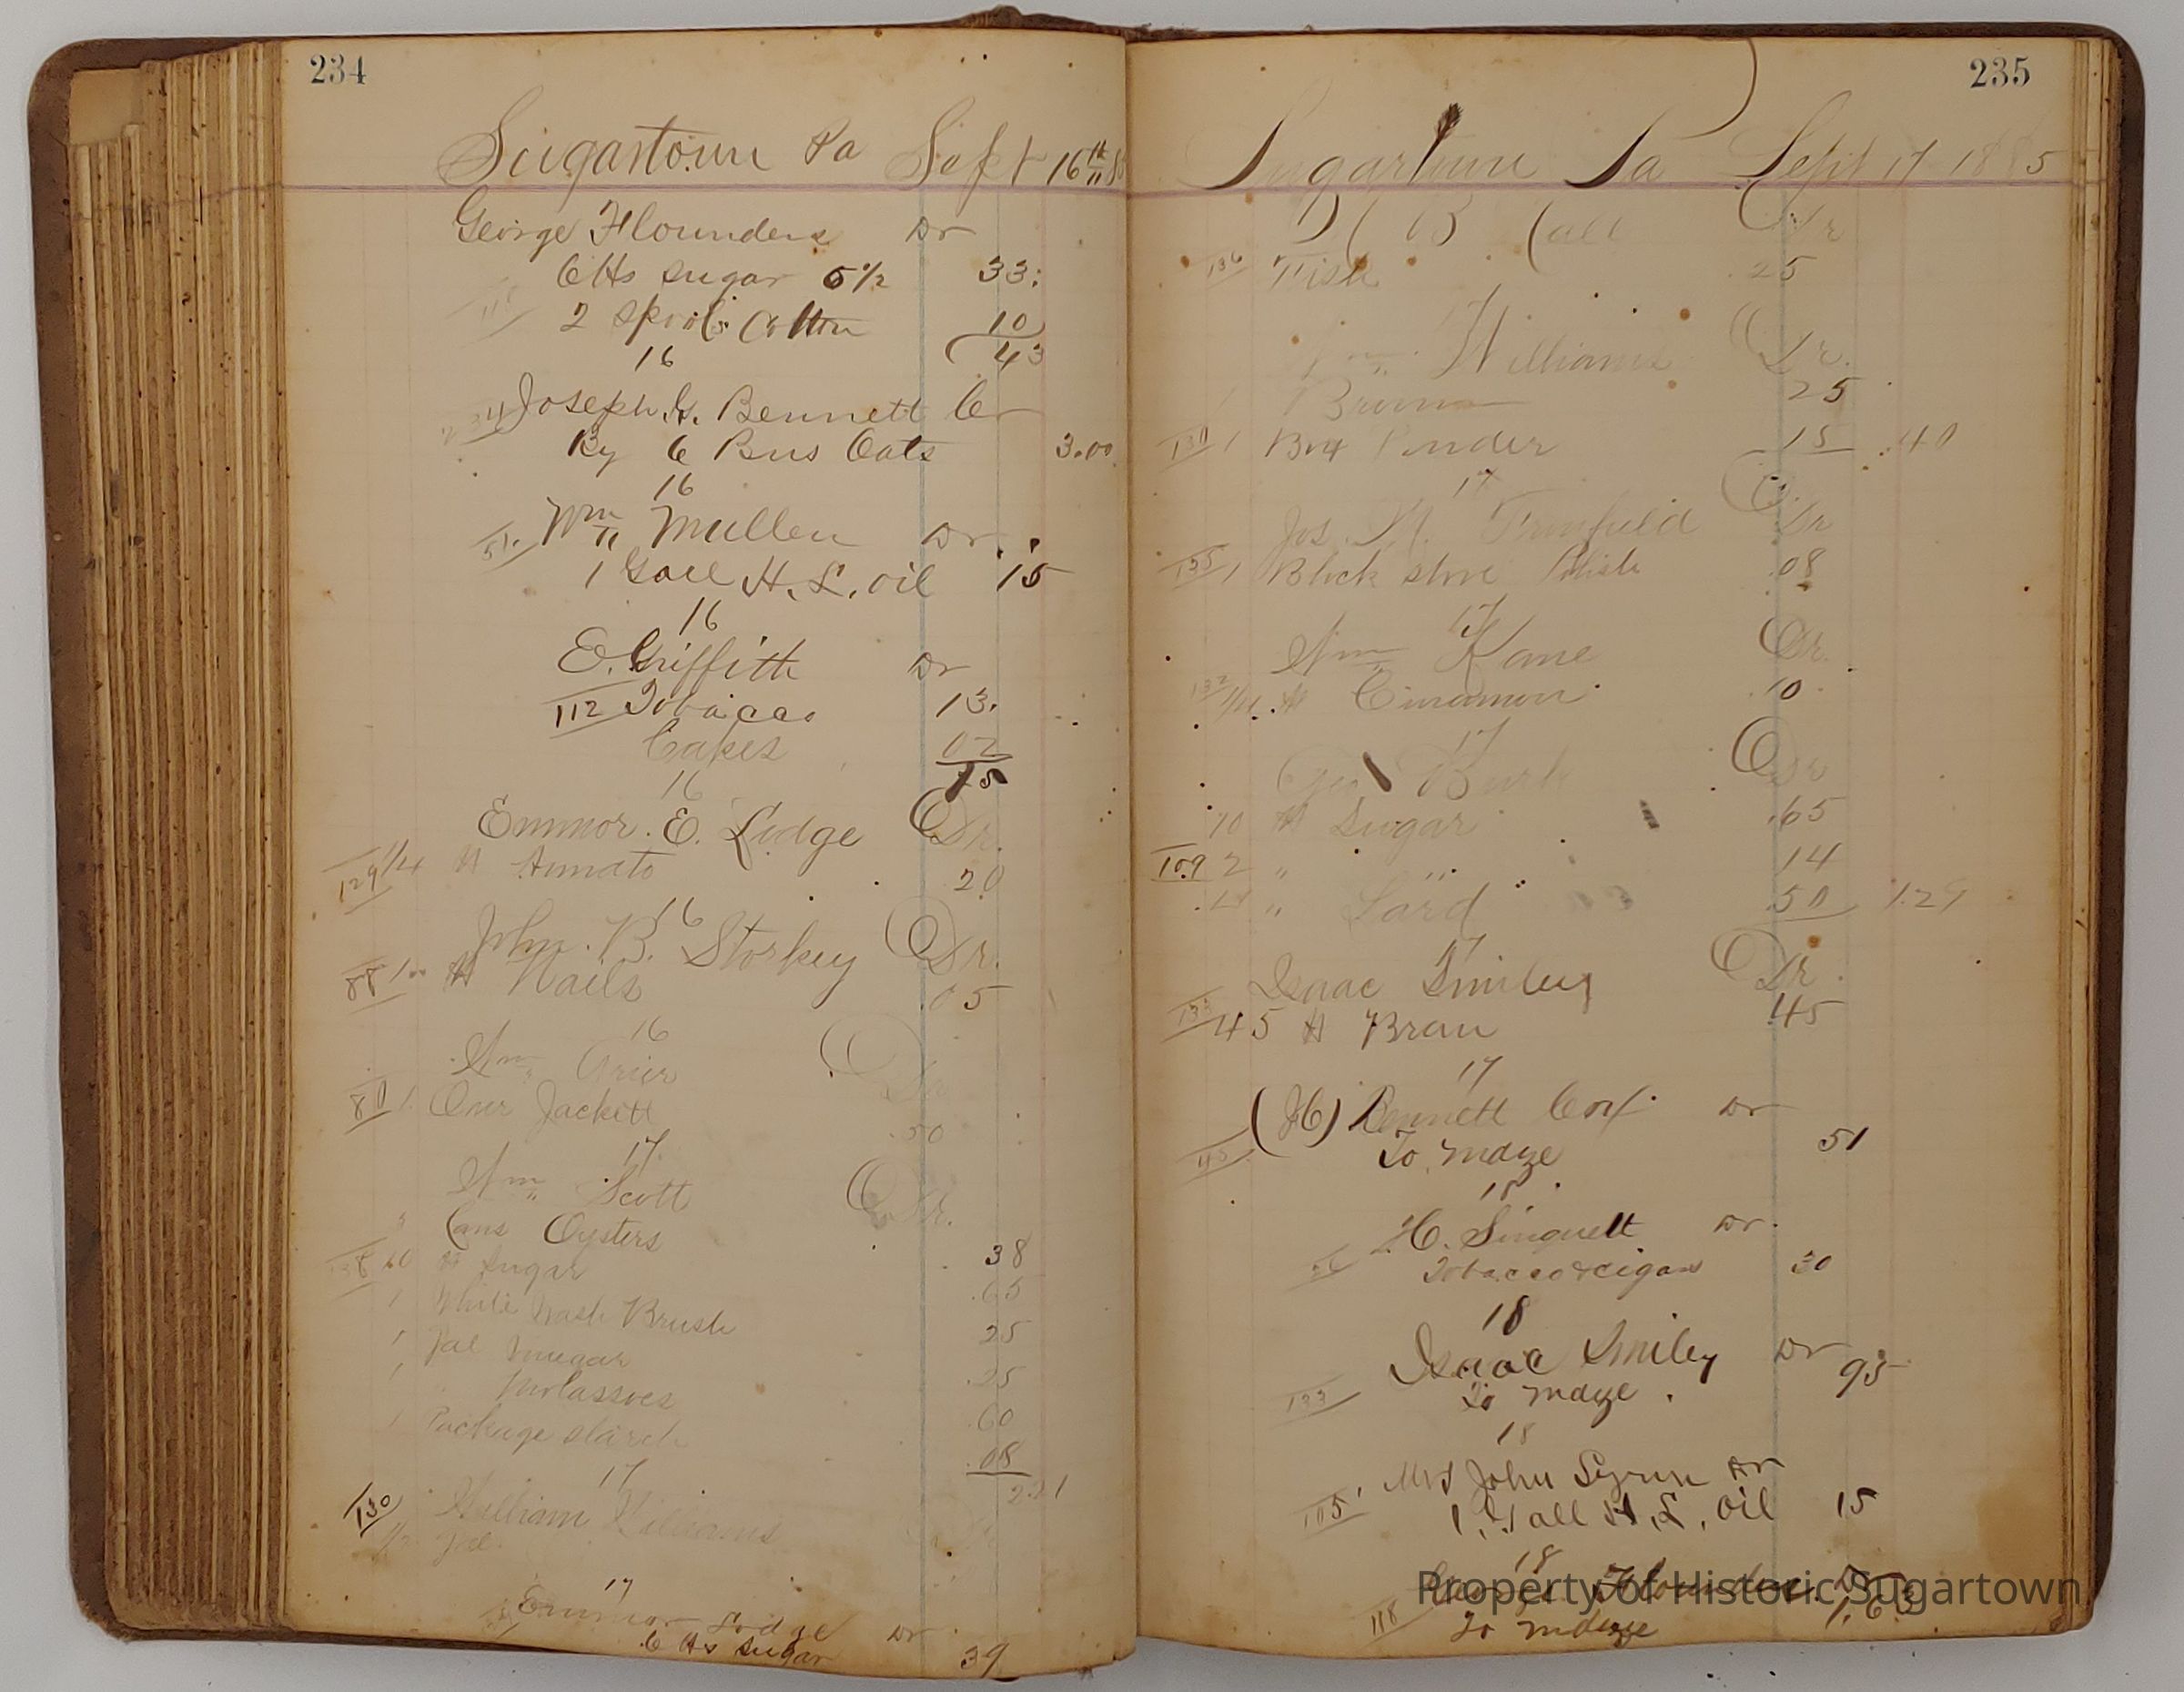 234
Sugartown Pa Sept 16th 188
George Flounders Dr
6 lbs Sugar 5 1/2 33
118 2 Spools Cotton 10
16 43
234 Joseph H. Bennett Cr
By 6 Bus Oats 3.00
16
51. Wm Mullen Dr.
1 Gall H. L. oil 15
16
E. Griffith Dr
112 Tobacco 13.
Cakes 02
16 15
Emmor. E. Lodge Dr.
129 1/4 lb 20
16
John. B. Storkey Dr.
88 1 lb Nails .05
16
Wm Grier Dr
80 1 Over Jackett .50
17
Wm Scott Dr.
3 Cans Oysters 38
138 10 lb Sugar .65
1 White Wash Brush 25
1 Gal Vinegar .25
1 " Molasses .60
1 Package Starch .08
17 2.21
130 William Williams
1/2 Gal.
17
Emmor Lodge Dr
6 lbs Sugar 39
235
Sugartown Pa Sept 17 1885
Call Dr
136 Fish .25
17
Wm Williams Dr.
1 Broom 25
130 1 Box Powder 15 .40
17
Jos. Dr
135 1 Block Stove Polish .08
17
Wm Kane Dr.
132 1/4 lb Cinamon .10
17
Geo Burk Dr
10 lb Sugar .65
109 2 " 14
" Lard .50 1.29
17
Isaac Smiley Dr.
133 45 lb Bran .45
17
(H) Bennett Cox Dr
45 To mdze 51
18
H. Singuett Dr.
Tobacco & cigars 30
18
Isaac Smiley Dr 95
133 To mdze.
18
Mrs John Dr
105 1 Gall H. L. oil 15
18
Flounders Dr 1,63
118 To mdze
Property of Historic Sugartown